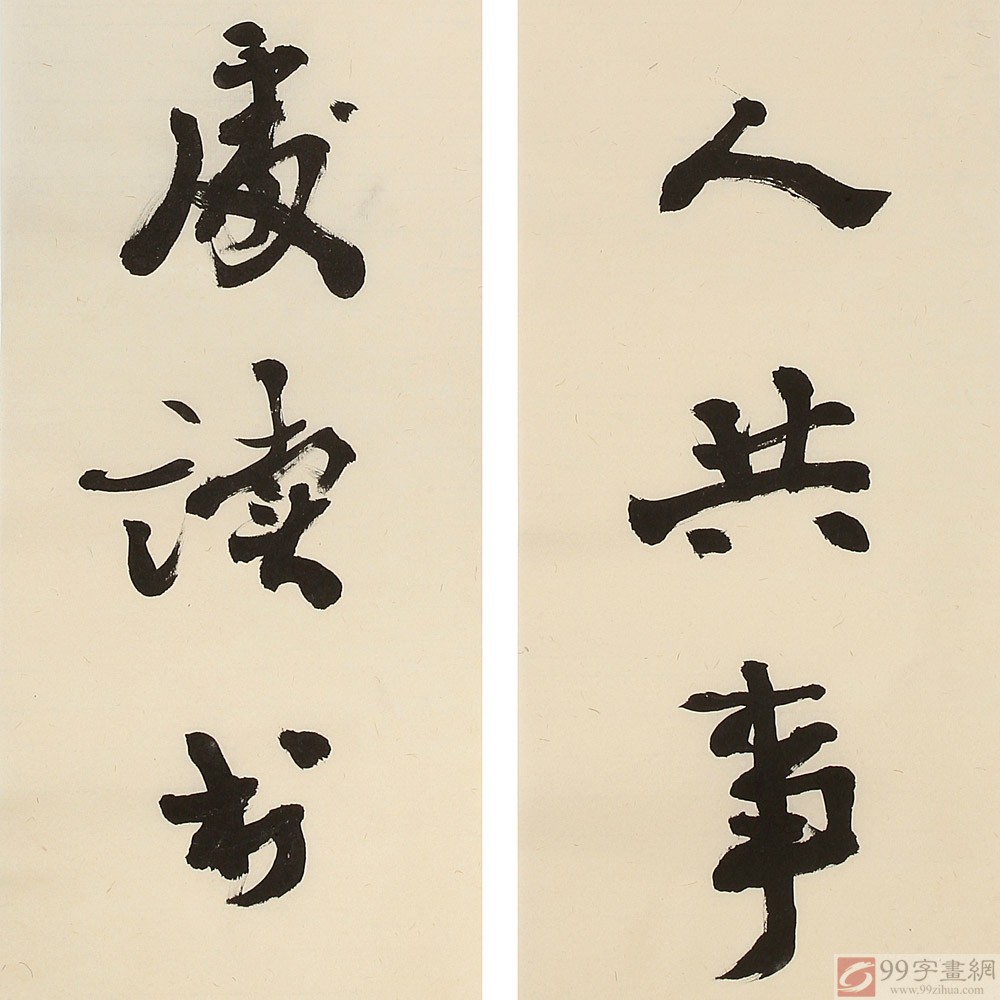 人共事
處读书
99字畫網
www.99zihua.com